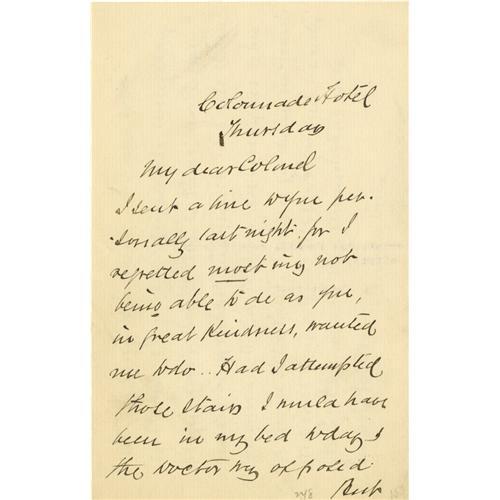 Colonnade Hotel
Thursday
My dear Colonel
I sent a line to you per-
sonally last night. for I
regretted most my not
being able to do as you,
in great Kindness, wanted
me to do.. Had I attempted
those stairs I would have
been in my bed today &
the Doctor was opposed
But
248